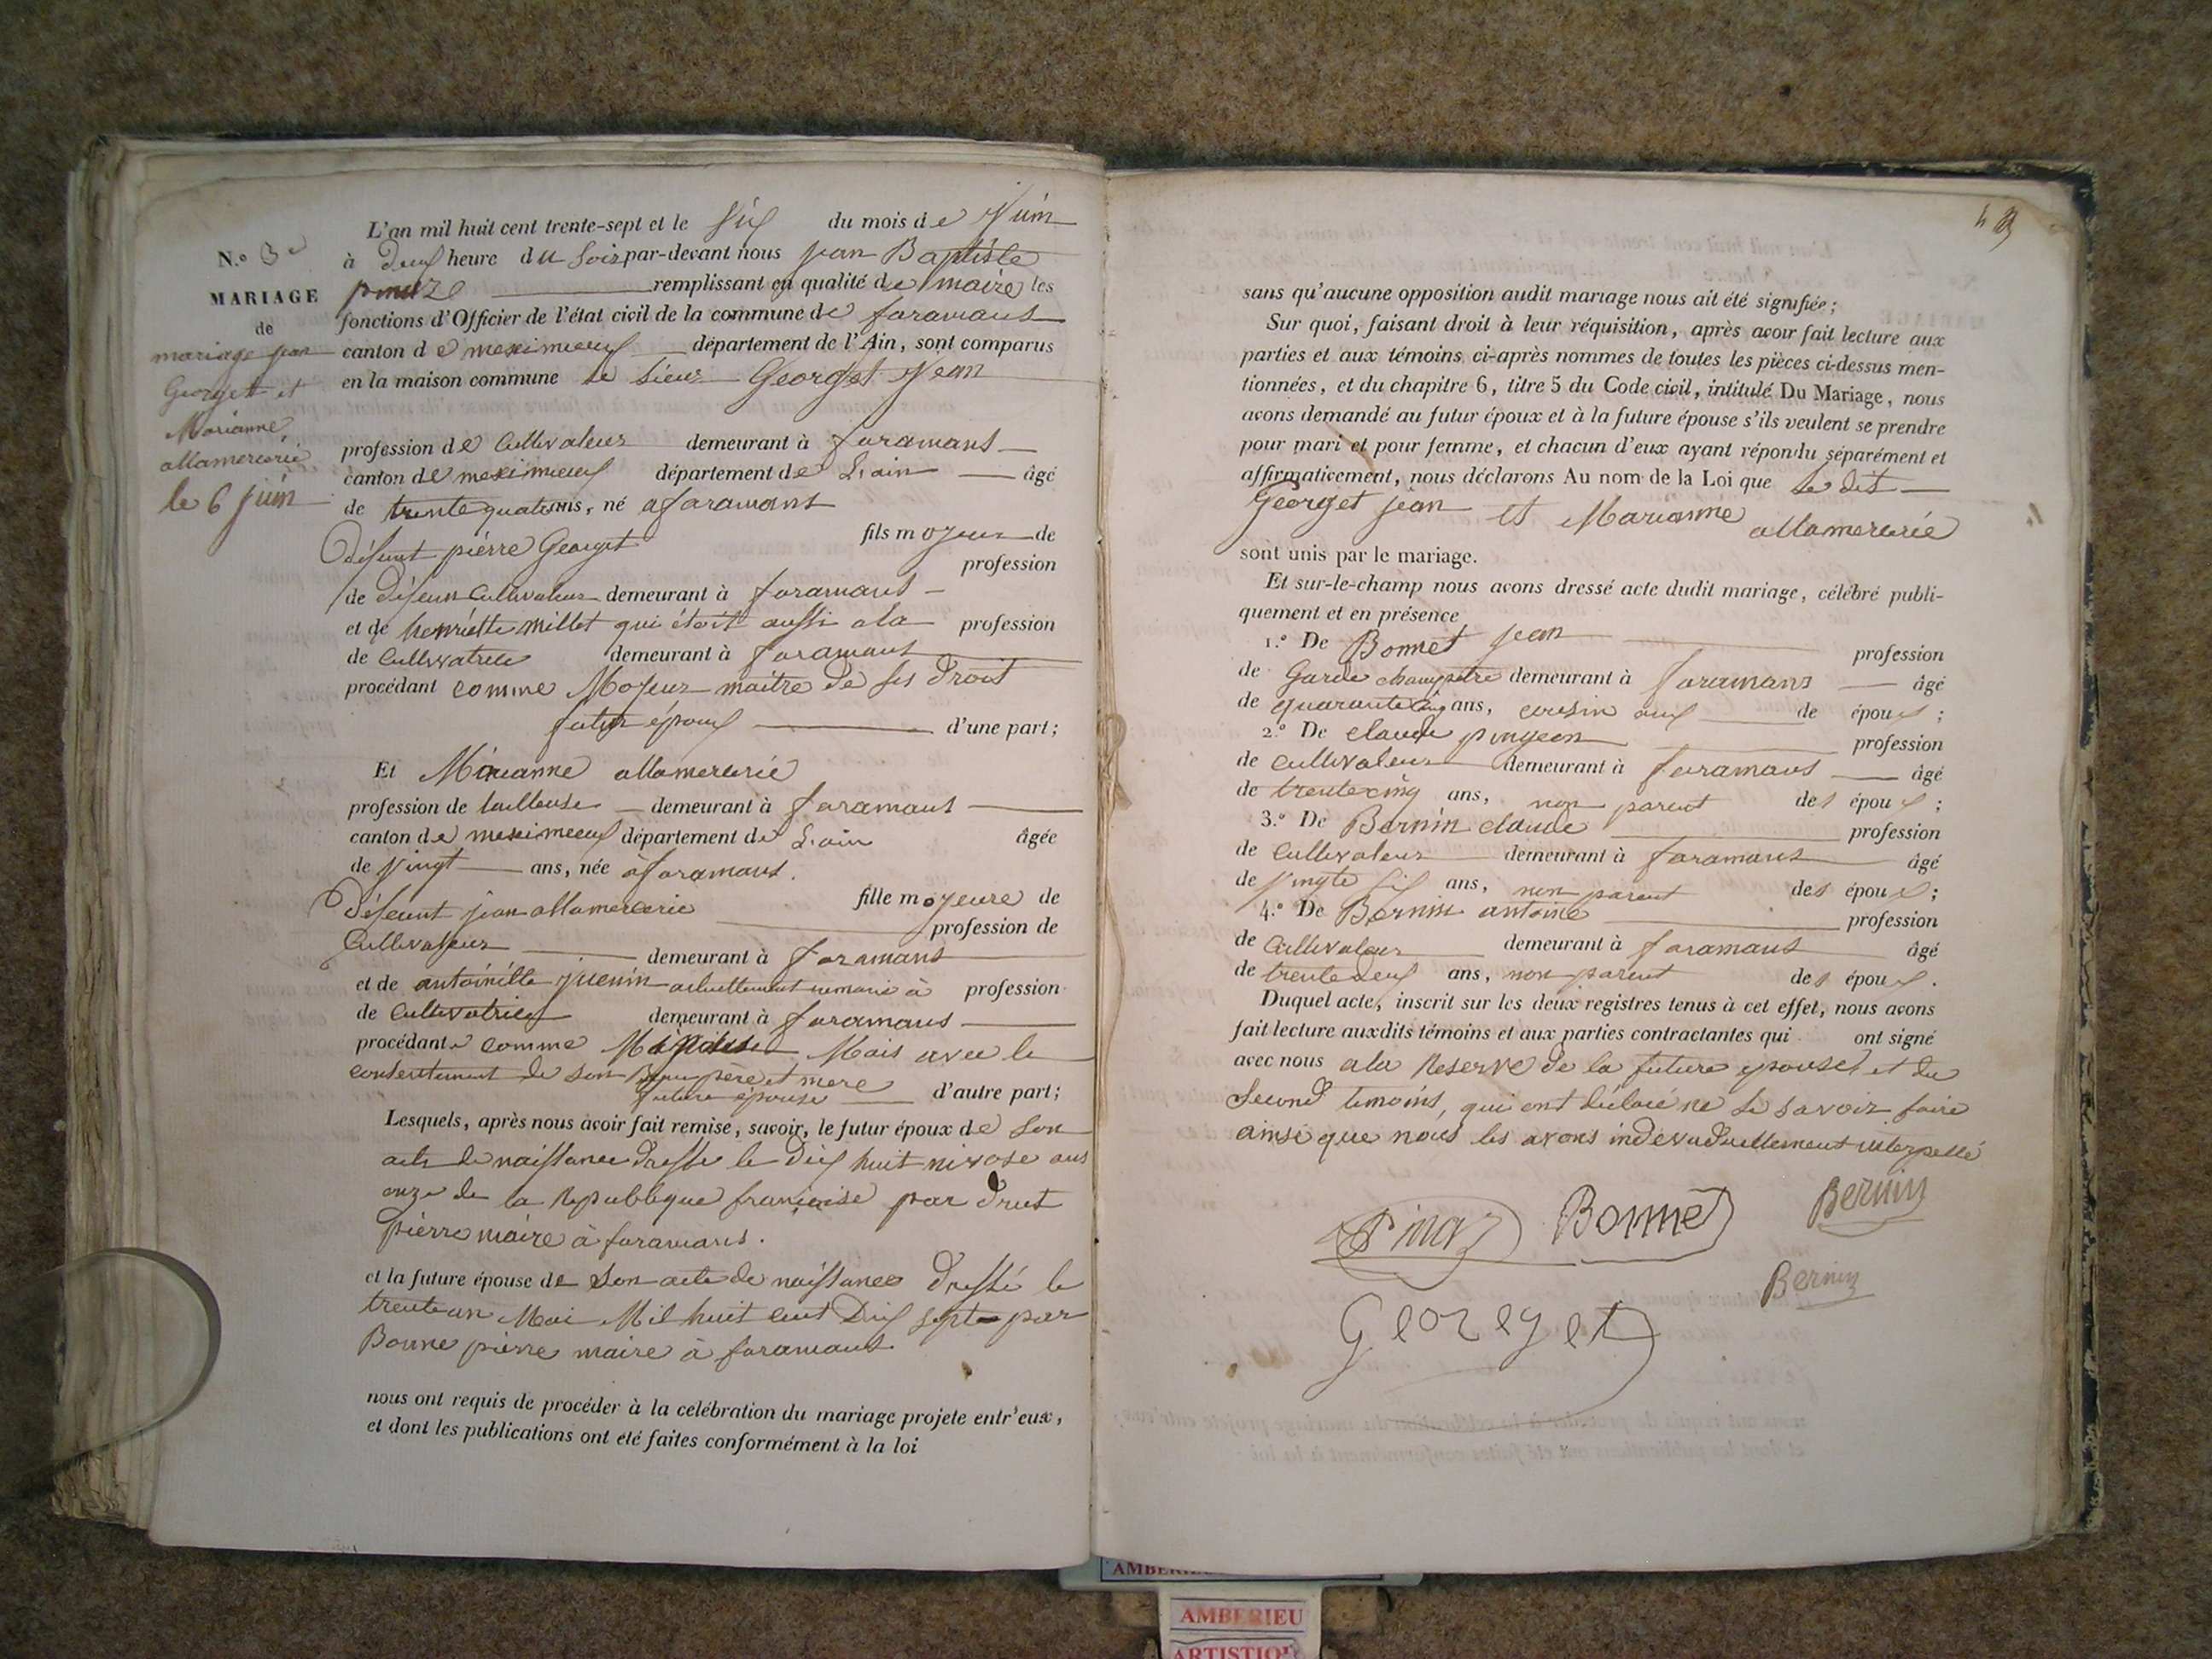 N.º 3e
MARIAGE
de
mariage jean
Georget et
Marianne
allamercerie
le 6 juin
L'an mil huit cent trente-sept et le six du mois de Juin
à deux heure du soir par-devant nous jean Baptiste
remplissant en qualité de maire les
fonctions d'Officier de l'état civil de la commune de faramans
canton de meximieux département de l'Ain, sont comparus
en la maison commune le sieur Georget Jean
profession de Cultivateur demeurant à faramans
canton de meximieux département de L'ain âgé
de trente quatre ans, né a faramans
fils mojeur de
défunt pièrre Georget profession
de défeun Cultivateur demeurant à faramans
et de henriette millet qui étoit aussi a la profession
de Cultivatrice demeurant à faramans
procédant comme Mojeur maitre de ses droit
futur époux d'une part;
Et Marianne allamercerie
profession de tailleuse demeurant à faramans
canton de meximieux département de L'ain âgée
de vingt ans, née à faramans.
fille mojeure de
Défeunt jean allamercerie profession de
Cultivateur demeurant à faramans
et de antoinette juenin actuellement remarié à profession
de Cultivatrice demeurant à faramans
procédante comme Mais avec le
consentement de son Beau père et mere
future épouse d'autre part;
Lesquels, après nous avoir fait remise, savoir, le futur époux de son
acte de naissance dressé le dix huit nivose ans
onze de la Republique française par drut
pierre maire à faramans.
et la future épouse de son acte de naissance dressé le
trente un Mai Mil huit cent dix sept par
Bonne pierre maire à faramans.
nous ont requis de procéder à la celébration du mariage projete entr'eux,
et dont les publications ont été faites conformément à la loi
sans qu'aucune opposition audit mariage nous ait été signifiée;
Sur quoi, faisant droit à leur réquisition, après avoir fait lecture aux
parties et aux témoins ci-après nommes de toutes les pièces ci-dessus men-
tionnées, et du chapitre 6, titre 5 du Code civil, intitulé Du Mariage, nous
avons demandé au futur époux et à la future épouse s'ils veulent se prendre
pour mari et pour femme, et chacun d'eux ayant répondu séparément et
affirmativement, nous déclarons Au nom de la Loi que Le dit
Georget jean et Marianne allamercerie
sont unis par le mariage.
Et sur-le-champ nous avons dressé acte dudit mariage, célébré publi-
quement et en présence
1.º De Bonnet jean profession
de Garde champetre demeurant à faramans âgé
de quarante cinq ans, cousin aux de époux;
2.º De claude pingeon profession
de cultivateur demeurant à faramans âgé
de trente cinq ans, non parent des époux;
3.º De Bernin claude profession
de Cultivateur demeurant à faramans âgé
de vingte six ans, non parent des époux;
4.º De Bernin antoine profession
de Cultivateur demeurant à faramans âgé
de trente deux ans, non parent des époux.
Duquel acte, inscrit sur les deux registres tenus à cet effet, nous avons
fait lecture auxdits témoins et aux parties contractantes qui ont signé
avec nous a la Reserve de la future epouse, et du
Second temoins, qui ont déclaré ne le savoir faire
ainsi que nous les avons indevaduellement interpellé
Bonnet
Bernin
Bernin
Georget
AMBERIEU
ARTISTIQ